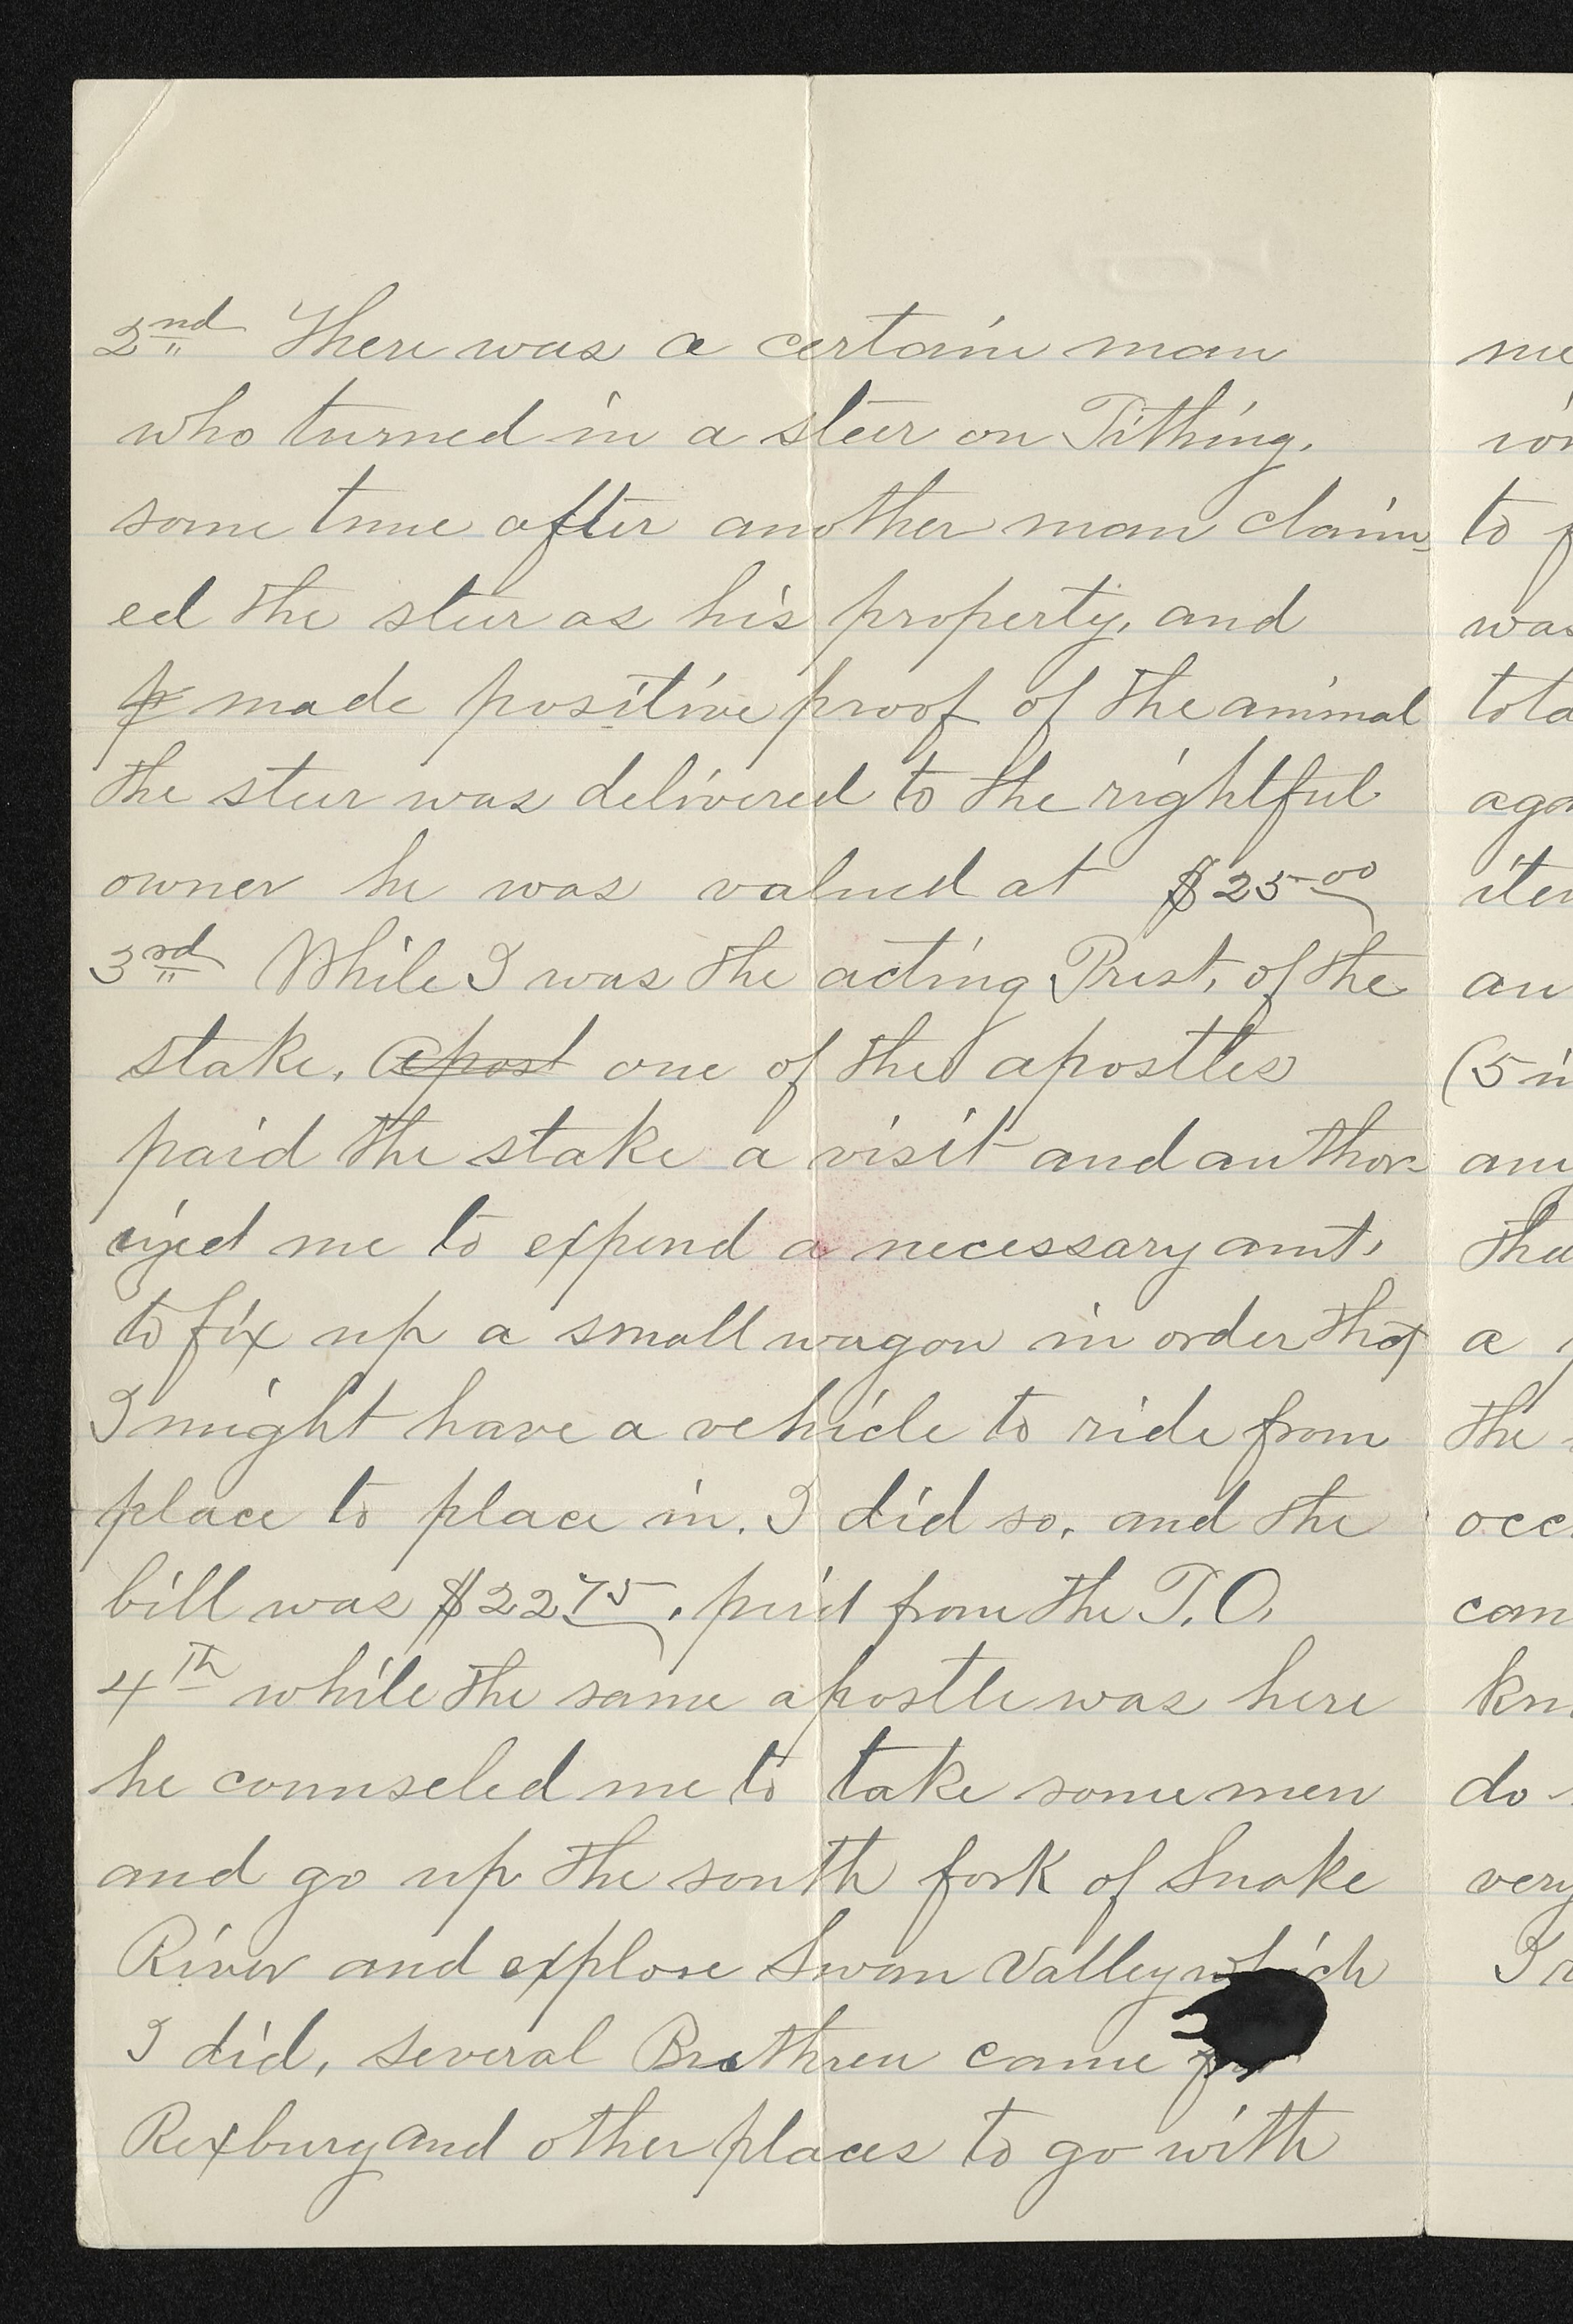 2nd There was a certain man
who turned in a steer on Tithing.
some time after another man claim-
ed the steer as his property, and
p made positive proof of the animal
the steer was delivered to the rightful
owner he was valued at $25 00
3rd While I was the acting Prest, of the
stake, Apost one of the apostles
paid the stake a visit and author-
ized me to expend a necessary amt,
to fix up a small wagon in order that
I might have a vehicle to ride from
place to place in. I did so, and the
bill was $22 75, paid from the T.O.
4th while the same apostle was here
he counseled me to take some men
and go up the south fork of Snake
River and explore Swan Valley which
I did, several Brethren came
Rexburg and other places to go with
to
was
an
(5
a
the
do
very
I